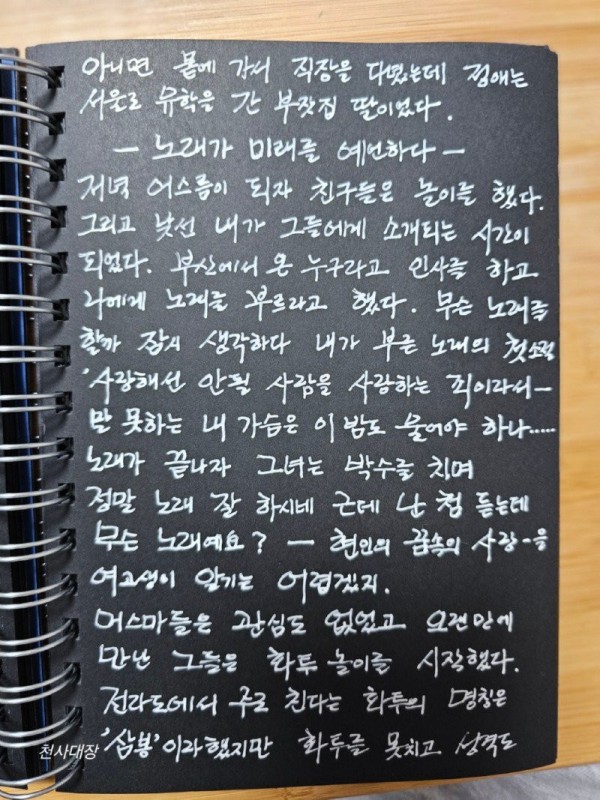 아니면 몸에 가서 직장을 다녔는데 정애는
서울로 유학을 간 부잣집 딸이었다.
— 노래가 미래를 예언하다 —
저녁 어스름이 되자 친구들은 놀이를 했다.
그리고 낯선 내가 그들에게 소개되는 시간이
되었다. 부산에서 온 누구라고 인사를 하고
나에게 노래를 부르라고 했다. 무슨 노래를
할까 잠시 생각하다 내가 부른 노래의 첫소절
'사랑해선 안될 사람을 사랑하는 죄이라서—
말 못하는 내 가슴은 이 밤도 울어야 하나.....
노래가 끝나자 그녀는 박수를 치며
정말 노래 잘 하시네 근데 난 첨 듣는데
무슨 노래예요? — 현인의 꿈속의 사랑-을
여고생이 알기는 어렵겠지.
머스마들은 관심도 없었고 오랜만에
만난 그들은 화투 놀이를 시작했다.
전라도에서 주로 친다는 화투의 명칭은
'삼봉'이라 했지만 화투를 못치고 상격도
천사대장